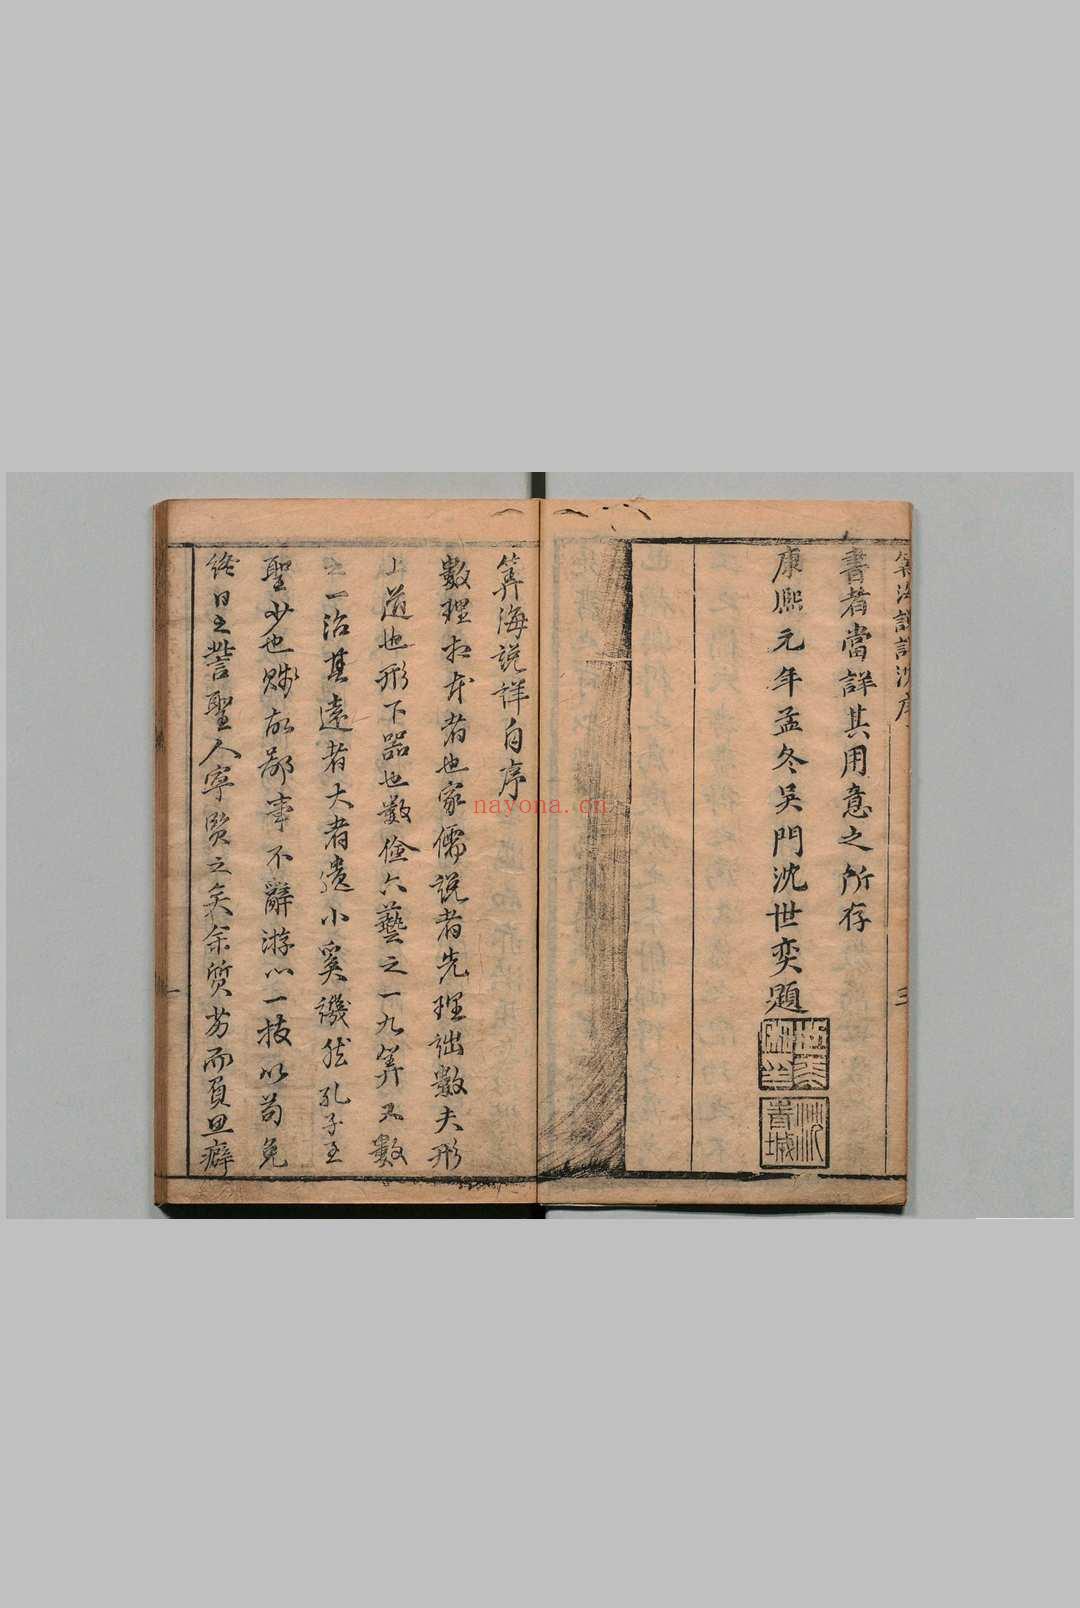 算海說詳沈序
書者當詳其用意之所存
康熙元年孟冬吳門沈世奕題
三
算海說詳自序
數理相成者也家儒說者先理詘數夫形
上道也形下器也數儉六藝之一九算又數
之一治其遠者大者遺小奚譏然孔子至
聖少也賤故鄙事不辭游心一技以苟免
終日之訾聖人寧賢之矣余質劣而負思癖
一
nayona.cn